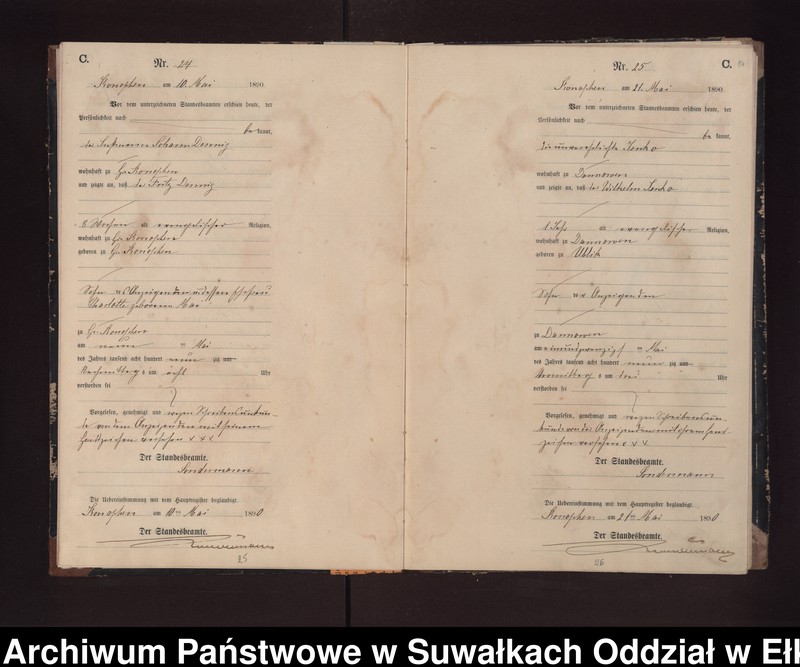 C.
Nr. 24
Konopken am 10. Mai 1890
Vor dem unterzeichneten Standesbeamten erschien heute, der
Persönlichkeit nach
be kannt,
der Johann
wohnhaft zu Gr. Konopken
und zeigte an, daß der Fritz
8 Wochen alt evangelischer Religion,
wohnhaft zu Gr. Konopken
geboren zu Gr. Konopken
Sohn des Anzeigenden
Charlotte geborenen
zu Gr. Konopken
am neun ten Mai
des Jahres tausend acht hundert neun zig
Nachmittags um acht Uhr
verstorben sei
Vorgelesen, genehmigt und wegen Schreibensunkun-
de von dem Anzeigenden mit seinem
Handzeichen versehen + + +
Der Standesbeamte.
Sondermann
Die Uebereinstimmung mit dem Hauptregister beglaubigt.
Konopken am 10ten Mai 1890
Der Standesbeamte.
Sondermann
25
Nr. 25
C.
Konopken am 21. Mai 1890
Vor dem unterzeichneten Standesbeamten erschien heute, der
Persönlichkeit nach
be kannt,
die unverehelichte
wohnhaft zu Dannowen
und zeigte an, daß der Wilhelm
1 Jahr alt evangelischer Religion,
wohnhaft zu Dannowen
geboren zu Ublik
Sohn der Anzeigenden
zu Dannowen
am einundzwanzigsten Mai
des Jahres tausend acht hundert neun zig
Vormittags um drei Uhr
verstorben sei
Vorgelesen, genehmigt und wegen Schreibensun-
kunde von der Anzeigenden mit ihrem Hand-
zeichen versehen + + +
Der Standesbeamte.
Sondermann
Die Uebereinstimmung mit dem Hauptregister beglaubigt.
Konopken am 21ten Mai 1890
Der Standesbeamte.
Sondermann
26
Archiwum Państwowe w Suwałkach Oddział w Eł